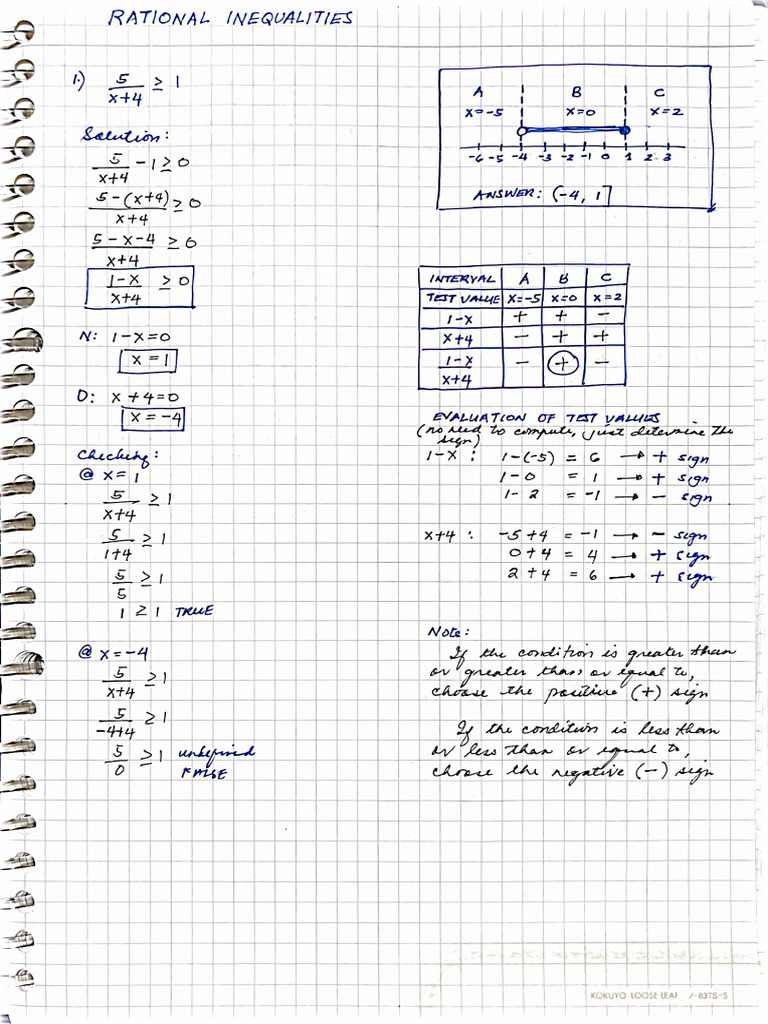 RATIONAL INEQUALITIES
1.) 5/(x+4) ≥ 1
Solution:
5/(x+4) - 1 ≥ 0
(5-(x+4))/(x+4) ≥ 0
(5-x-4)/(x+4) ≥ 0
(1-x)/(x+4) ≥ 0
N: 1-x=0
x = 1
D: x+4=0
x = -4
Checking:
@ x= 1
5/(x+4) ≥ 1
5/(1+4) ≥ 1
5/5 ≥ 1
1 ≥ 1 TRUE
@ x=-4
5/(x+4) ≥ 1
5/(-4+4) ≥ 1
5/0 ≥ 1 undefined
FALSE
A B C
x=-5 x=0 x=2
-6 -5 -4 -3 -2 -1 0 1 2 3
ANSWER: (-4, 1]
INTERVAL A B C
TEST VALUE x=-5 x=0 x=2
1-x + + -
x+4 - + +
(1-x)/(x+4) - + -
EVALUATION OF TEST VALUES
(no need to compute, just determine the
sign)
1-x : 1-(-5) = 6 → + sign
1-0 = 1 → + sign
1-2 = -1 → - sign
x+4 : -5+4 = -1 → - sign
0+4 = 4 → + sign
2+4 = 6 → + sign
Note:
If the condition is greater than
or greater than or equal to,
choose the positive (+) sign
If the condition is less than
or less than or equal to,
choose the negative (-) sign
KOKUYO LOOSE-LEAF ノ-837S-5